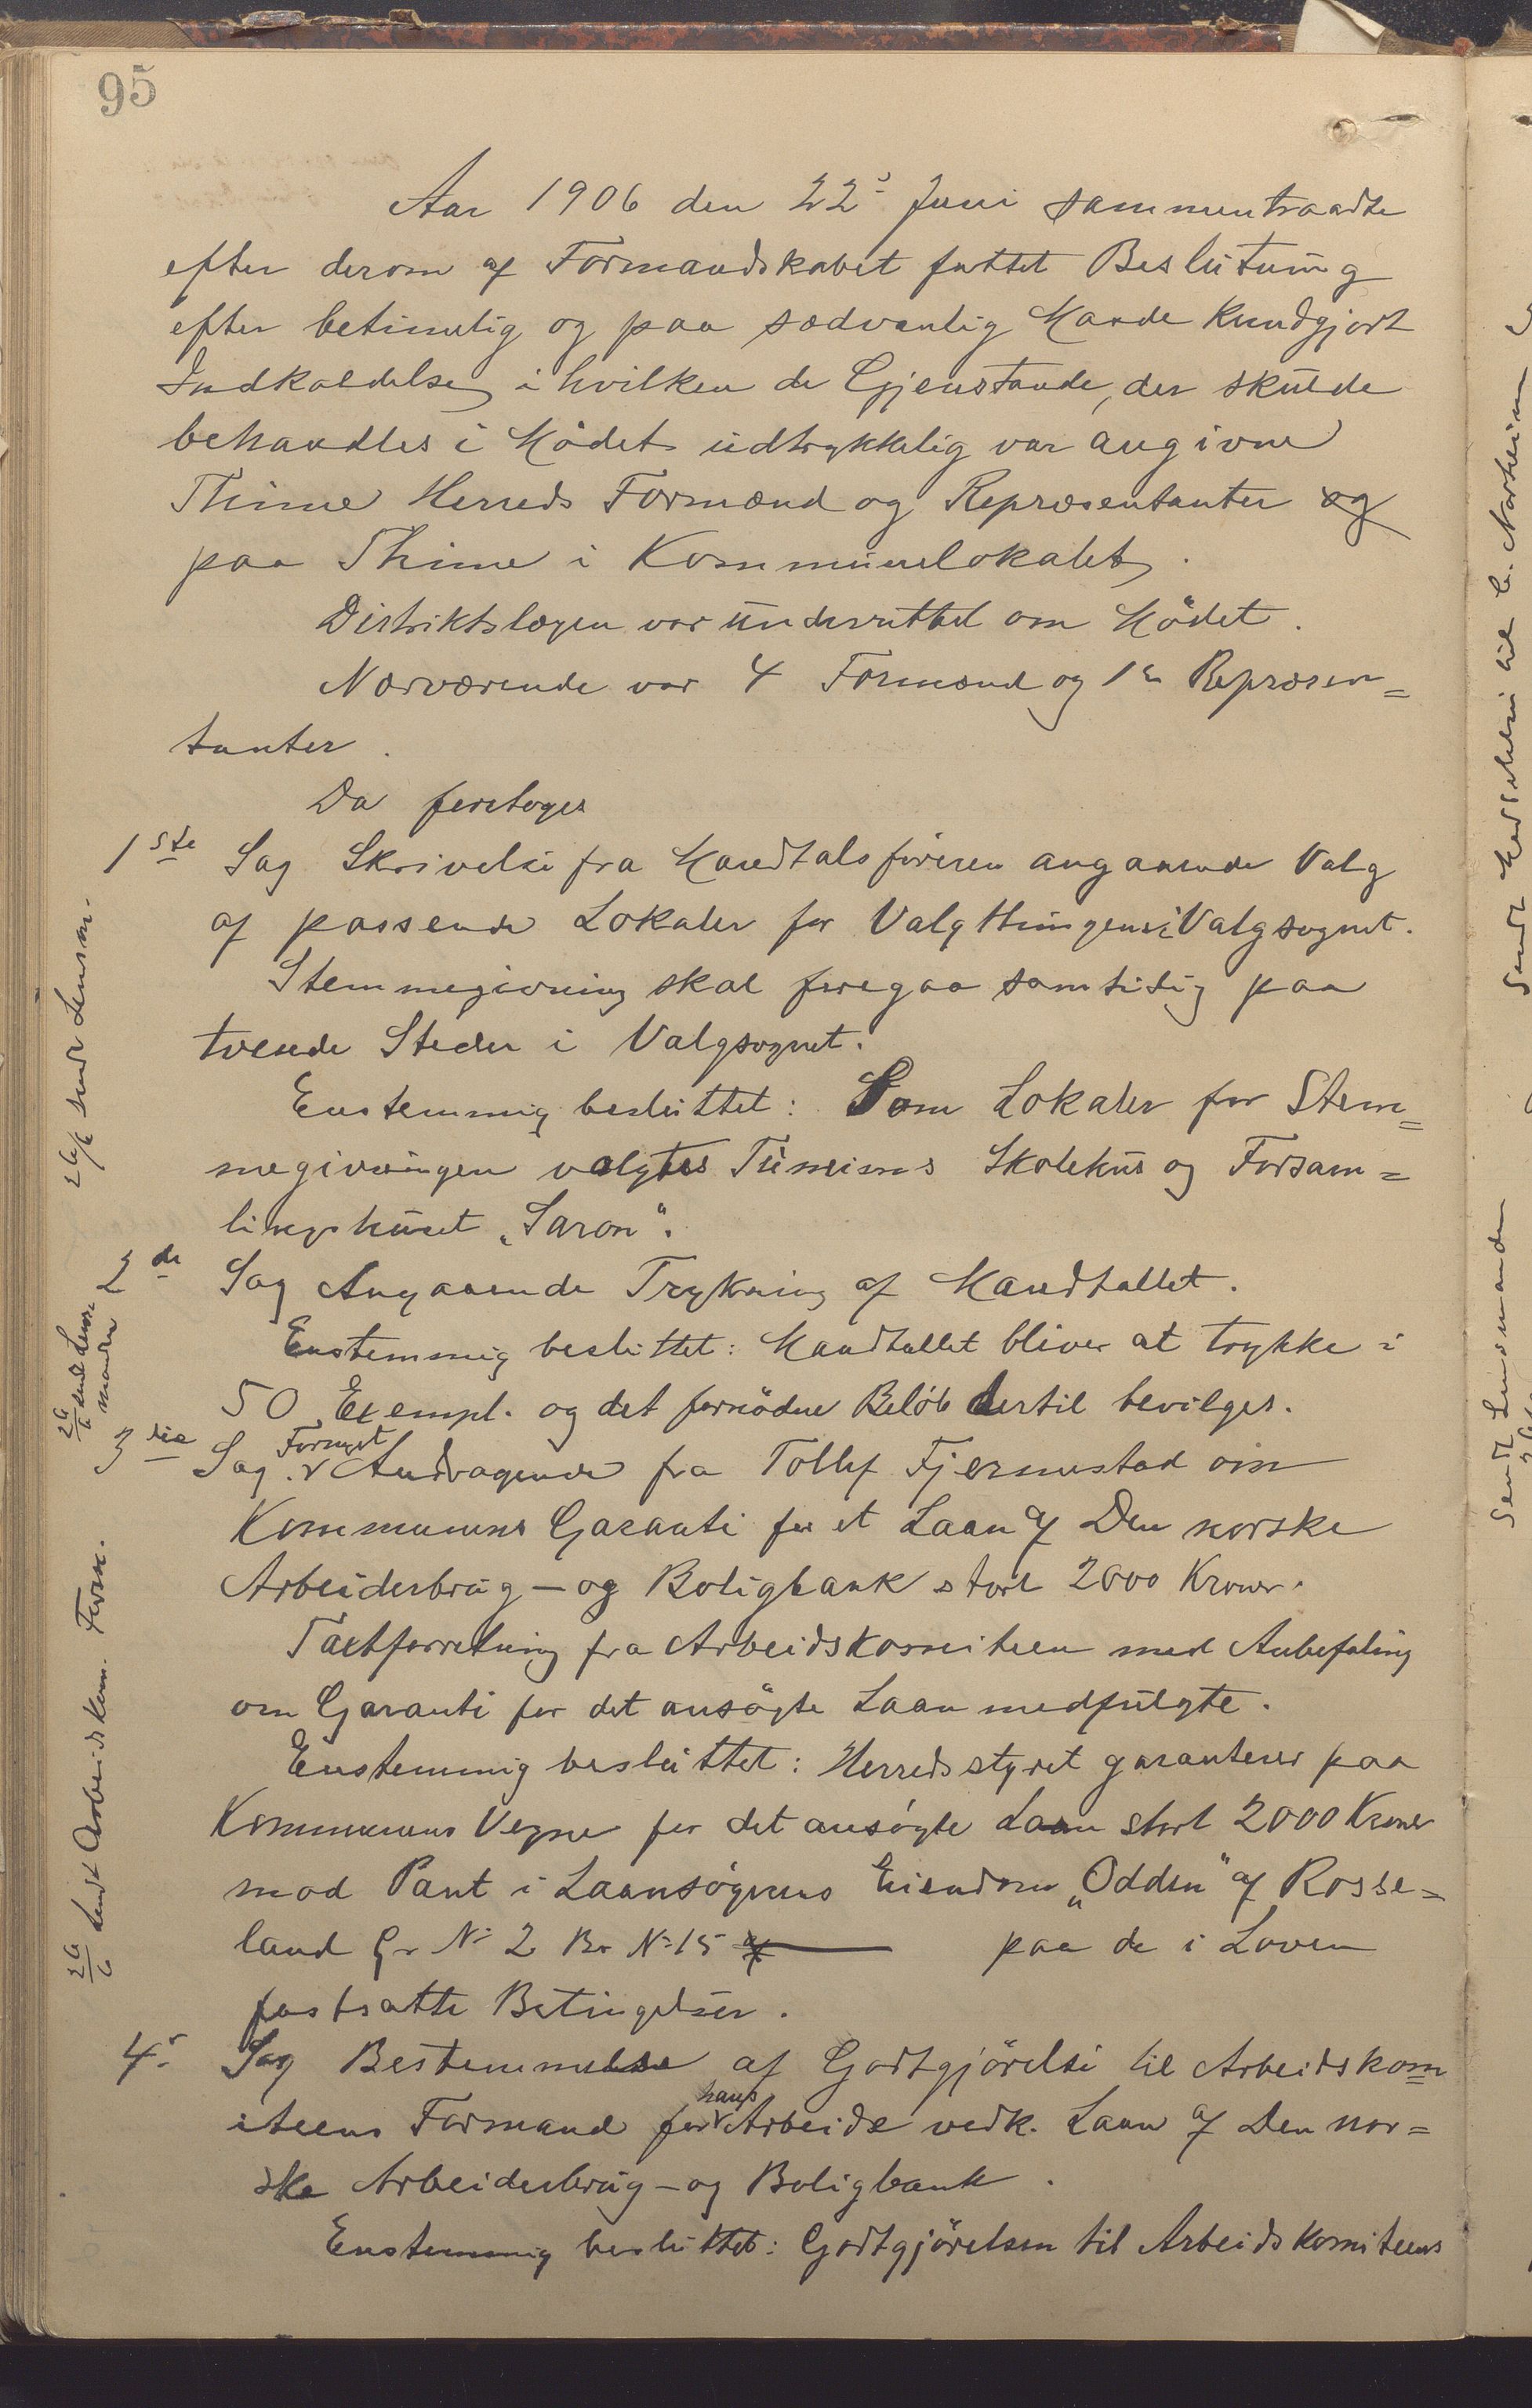 95
Aar 1906 den 22de Juni sammentraadte
efter derom af Formandskabet fattet Beslutning
efter betimelig og paa sædvanlig Maade kundgjort
Indkaldelse i hvilken de Gjenstande, der skulde
behandles i Mödet udtrykkelig var angivne
Thime Herreds Formænd og Repræsentanter og
paa Thime i Kommunelokalet.
Distriktslægen var underrettet om Mödet.
Nærværende var 4 Formænd og Repræsen=
tanter.
Da foretoges
1ste Sag Skrivelse fra Mandtalsföreren angaaende Valg
af passende Lokaler for Valgthingene i Valgsognet.
Stemmegivning skal foregaa samtidig paa
tvende Steder i Valgsognet.
Enstemmig besluttet: Som Lokaler for Stem=
megivningen valgtes Tunheims Skolehus og Forsam=
lingshuset „Saron“.
2de Sag Angaaende Trykning af Mandtallet.
Enstemmig besluttet: Mandtallet bliver at trykke i
50 Exempl. og det fornödne Belöb dertil bevilges.
3die Sag. Fornyet Andragende fra Tollef Fjermestad om
Kommunens Garanti for et Laan af Den norske
Arbeiderbrug- og Boligbank stort 2000 Kroner.
Taxtforretning fra Arbeidskomiteen med Anbefaling
om Garanti for det ansögte Laan medfulgte.
Enstemmig besluttet: Herredsstyret garanterer paa
Kommunens Vegne for det ansögte Laan stort 2000 Kroner
mod Pant i Laansögerens Eiendom „Odden“ af Rosse=
land Gr No 2 Br No 15 af paa de i Loven
fastsatte Betingelser.
4. Sag Bestemmelse af Godtgjörelse til Arbeidskom
iteens Formand for hans Arbeide vedk. Laan af Den nor=
ske Arbeiderbrug- og Boligbank.
Enstemmig besluttet: Godtgjörelsen til Arbeidskomiteens
26/6 sendt Lensm.
26/6 sendt Lens
manden
26/6 sendt Arbeidskom. Form.
Sendt Lensmanden